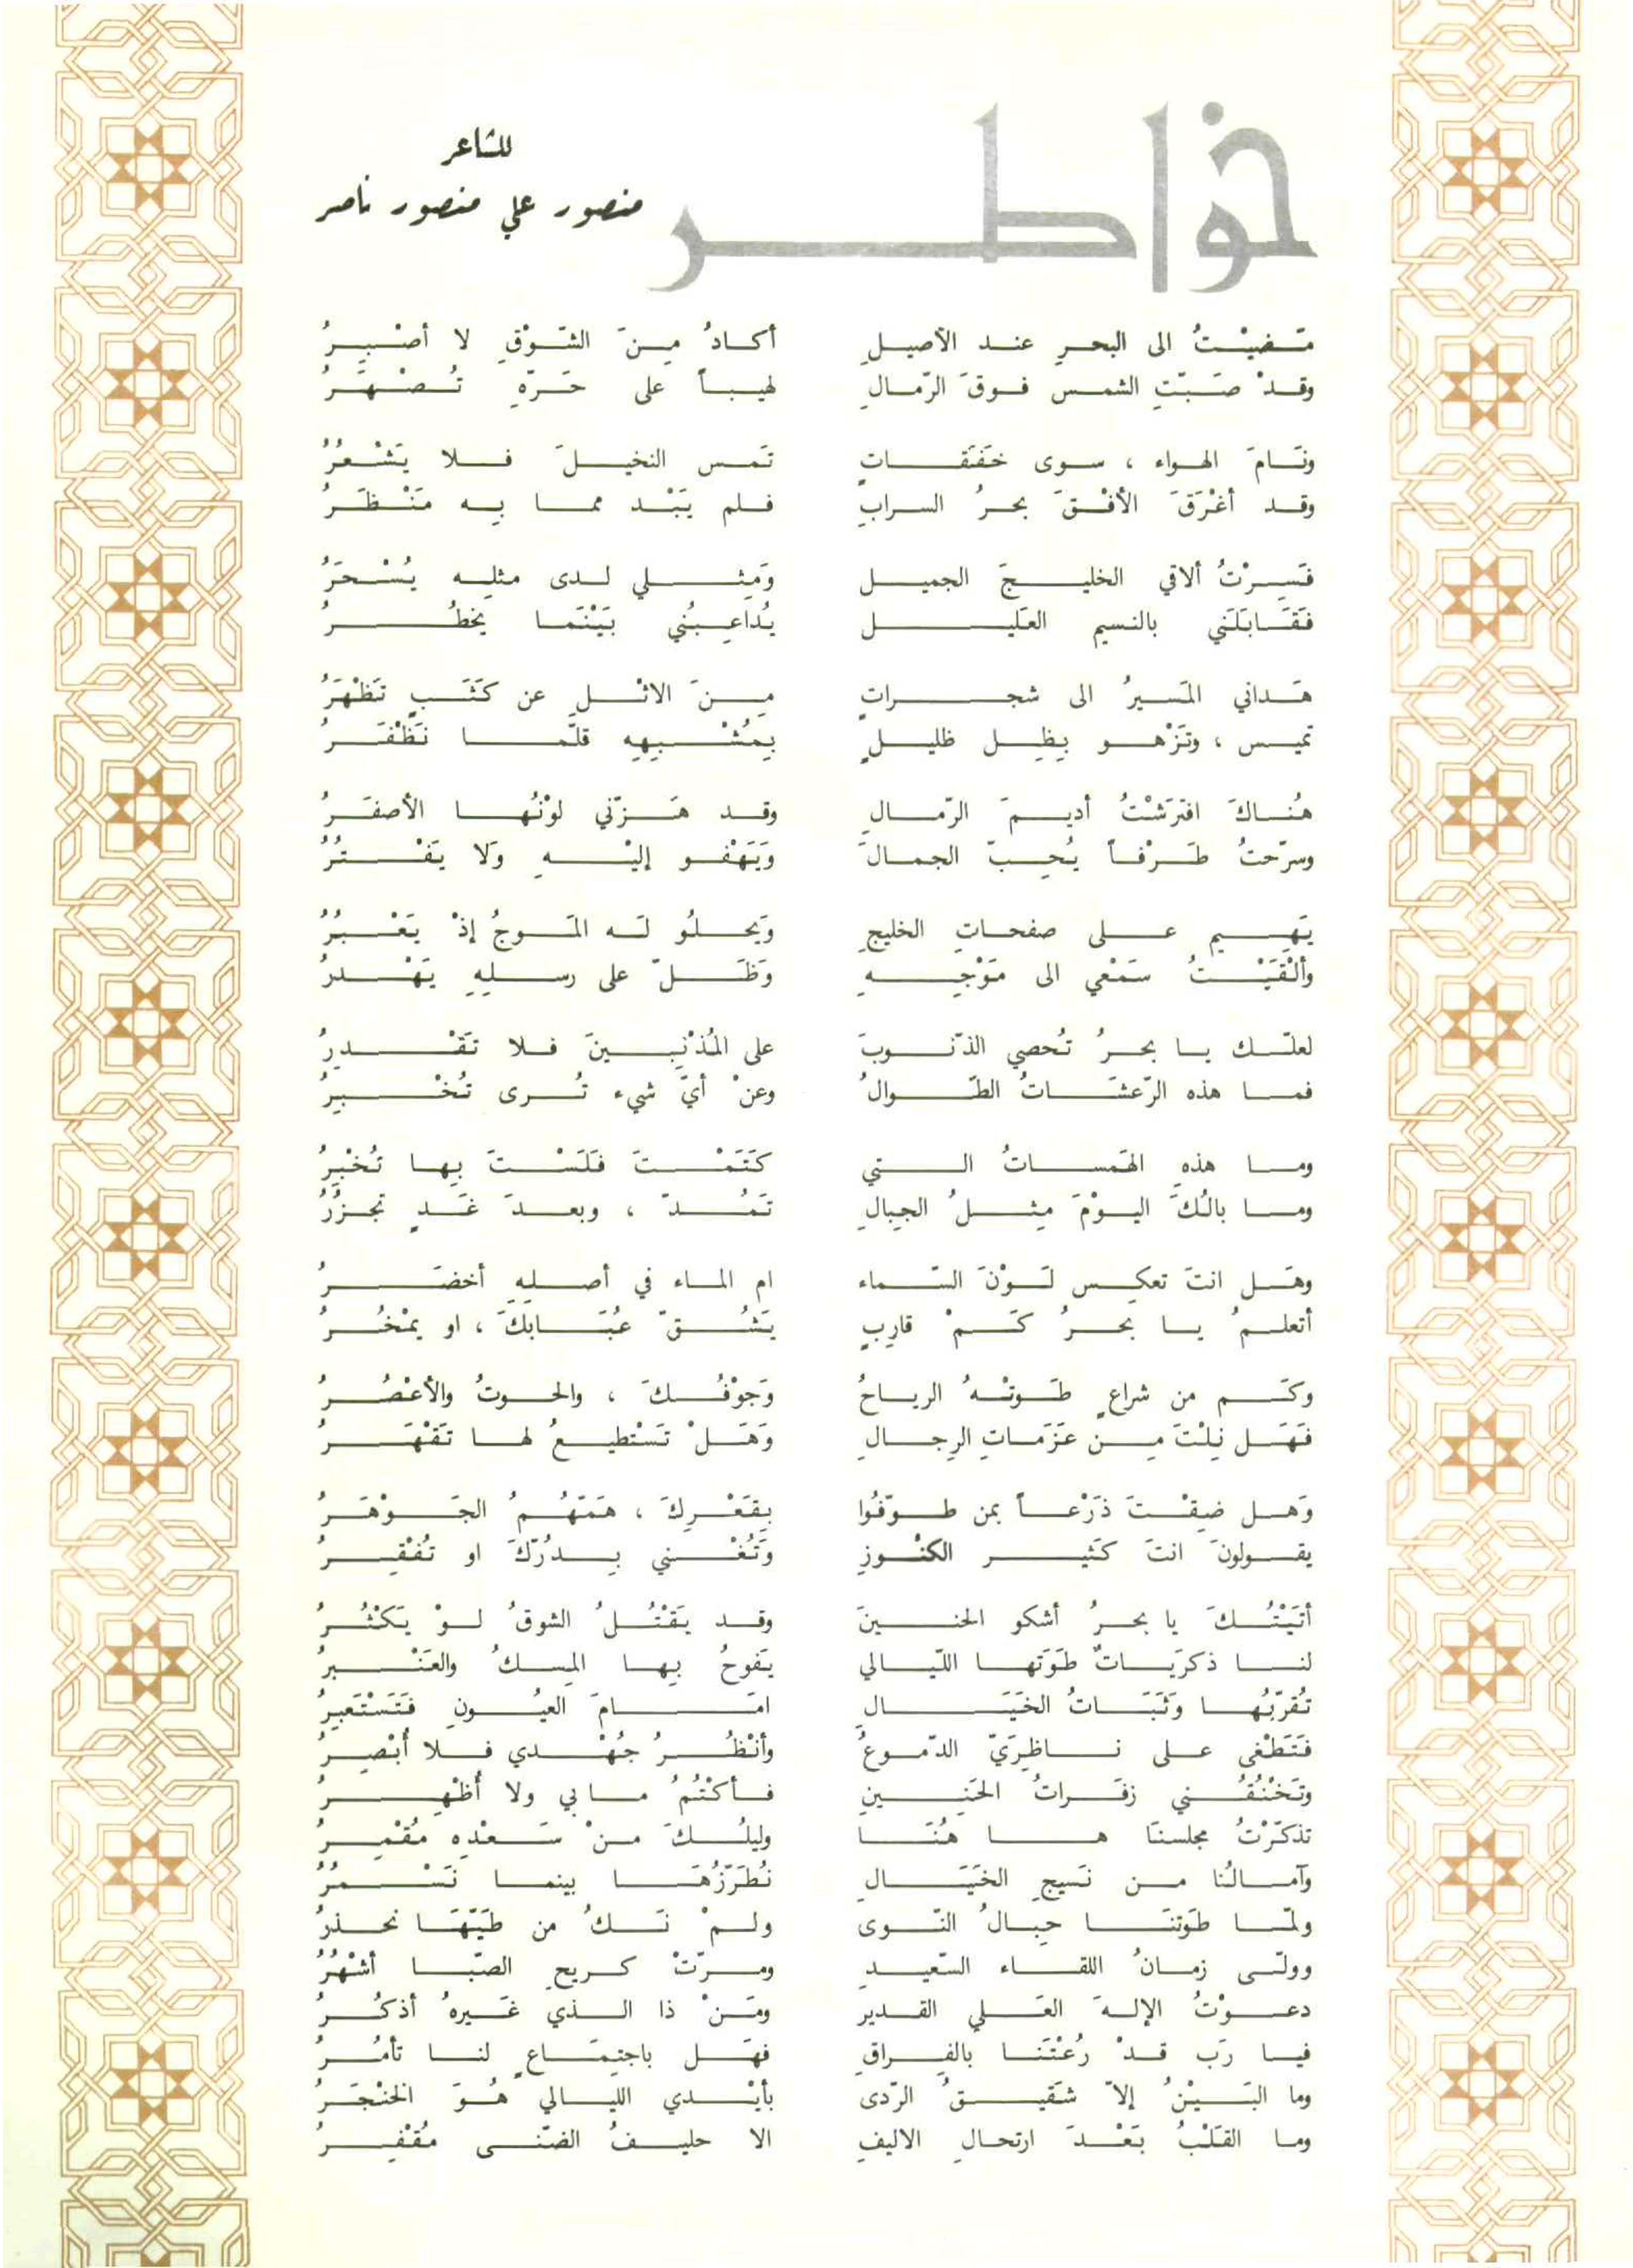 خواطر
للشاعر
منصور علي منصور ناصر
مَضيْتُ الى البحرِ عند الأصيلِ أكادُ مِنَ الشّوْقِ لا أصْبِرُ
وقدْ صَبّتِ الشمس فوقَ الرّمالِ لهيباً على حَرّهِ تُصْهَرُ
ونَامَ الهواء ، سوى خَفَقَاتٍ تَمس النخيلَ فلا يَشْعُرُ
وقد أغْرَقَ الأفْقَ بحرُ السرابِ فلم يَبْد مما بِه مَنْظَرُ
فَسِرْتُ ألاقي الخليجَ الجميل وَمِثلي لدى مثلِه يُسْحَرُ
فَقَابَلَني بالنسيم العَليل يُداعِبُني بَيْنَما يخطُرُ
هَداني المَسيرُ الى شجراتٍ مِنَ الاثْلِ عن كَثَبٍ تَظْهَرُ
تميس ، وتَزْهو بِظِل ظليلٍ بِمُشْبِهِهِ قلَّما نَظْفَرُ
هُناكَ افتَرَشْتُ أديمَ الرّمالِ وقد هَزّني لوْنُها الأصفَرُ
وسرّحتُ طَرْفاً يُحِبّ الجمالَ وَيَهْفو إليْهِ وَلا يَفْتُرُ
يَهَيم على صفحاتِ الخليجِ وَيَحلُو لَه المَوجُ إذْ يَعْبُرُ
وألْقَيْتُ سَمْعي الى مَوْجِهِ وَظَلّ على رسلِهِ يَهْدرُ
لعلّك يا بحرُ تُحصي الذّنوبَ على المُذْنِبينَ فلا تَقْدرُ
فما هذه الرّعشَاتُ الطّوالُ وعنْ أيّ شيء تُرى تُخْبِرُ
وما هذهِ الهَمساتُ التي كَتَمْتَ فَلَسْتَ بِها تُخْبِرُ
وما بالُكَ اليوْمَ مِثلُ الجِبالِ تَمُدّ ، وبعدَ غَدٍ تجزُرُ
وهَل انتَ تعكِس لَوْنَ السّماء ام الماء في أصلِهِ أخضَرُ
أتعلمُ يا بحرُ كَمْ قارِبٍ يَشُقّ عُبَابكَ ، او يمْخُرُ
وكَم من شراعٍ طَوتْهُ الرياحُ وَجوْفُكَ ، والحوتُ والأعْصُرُ
فَهَل نِلْتَ مِن عَزَمَاتِ الرِجالِ وَهَلْ تَسْتطيعُ لها تَقْهَرُ
وَهل ضِقْتَ ذَرْعاً بمن طوّفُوا بِقَعْرِكَ ، هَمّهُمُ الجَوْهَرُ
يقولونَ انتَ كَثير الكنُوزِ وَتُغْني بِدُرّكَ او تُفْقِرُ
أتَيْتُكَ يا بحرُ أشكو الحنينَ وقد يَقْتُلُ الشوقُ لوْ يَكْثُرُ
لنا ذكرَياتٌ طَوَتَها اللّيالي يَفوحُ بِها المِسكُ والعَنْبرُ
تُقرّبُها وَثَبَاتُ الخَيَالِ امَامَ العيُونِ فَتَسْتَعبِرُ
فَتَطْغى على ناظِرَيّ الدّموعُ وأنْظُرُ جُهْدي فلا أبْصِرُ
وتَخْنُقُني زفَراتُ الحَنِينِ فأكْتُمُ مابي ولا أُظْهِرُ
تذكّرْتُ مجلسنَا ها هُنَا وليلُكَ منْ سَعْدِه مُقْمِرُ
وآمالُنا من نَسيجِ الخَيَالِ نُطَرّزُهَا بينما نَسْمُرُ
ولمّا طَوتنَا حِبالُ النّوى ولمْ نَكُ من طَيّهَا نحذرُ
وولّى زمانُ اللقاء السّعيدِ ومرّتْ كريحِ الصّبا أشْهُرُ
دعوْتُ الإلهَ العَلي القدير ومَنْ ذا الذي غَيرهُ أذكُرُ
فيا رَب قدْ رُعْتَنَا بالفِراقِ فهَل باجتِمَاعٍ لنا تأمُرُ
وما البَيْنُ إلاّ شَقيقُ الرّدى بأيْدي الليالي هُوَ الخنْجَرُ
وما القَلْبُ بَعْدَ ارتحالِ الاليفِ الا حليفُ الضّنى مُقْفِرُ